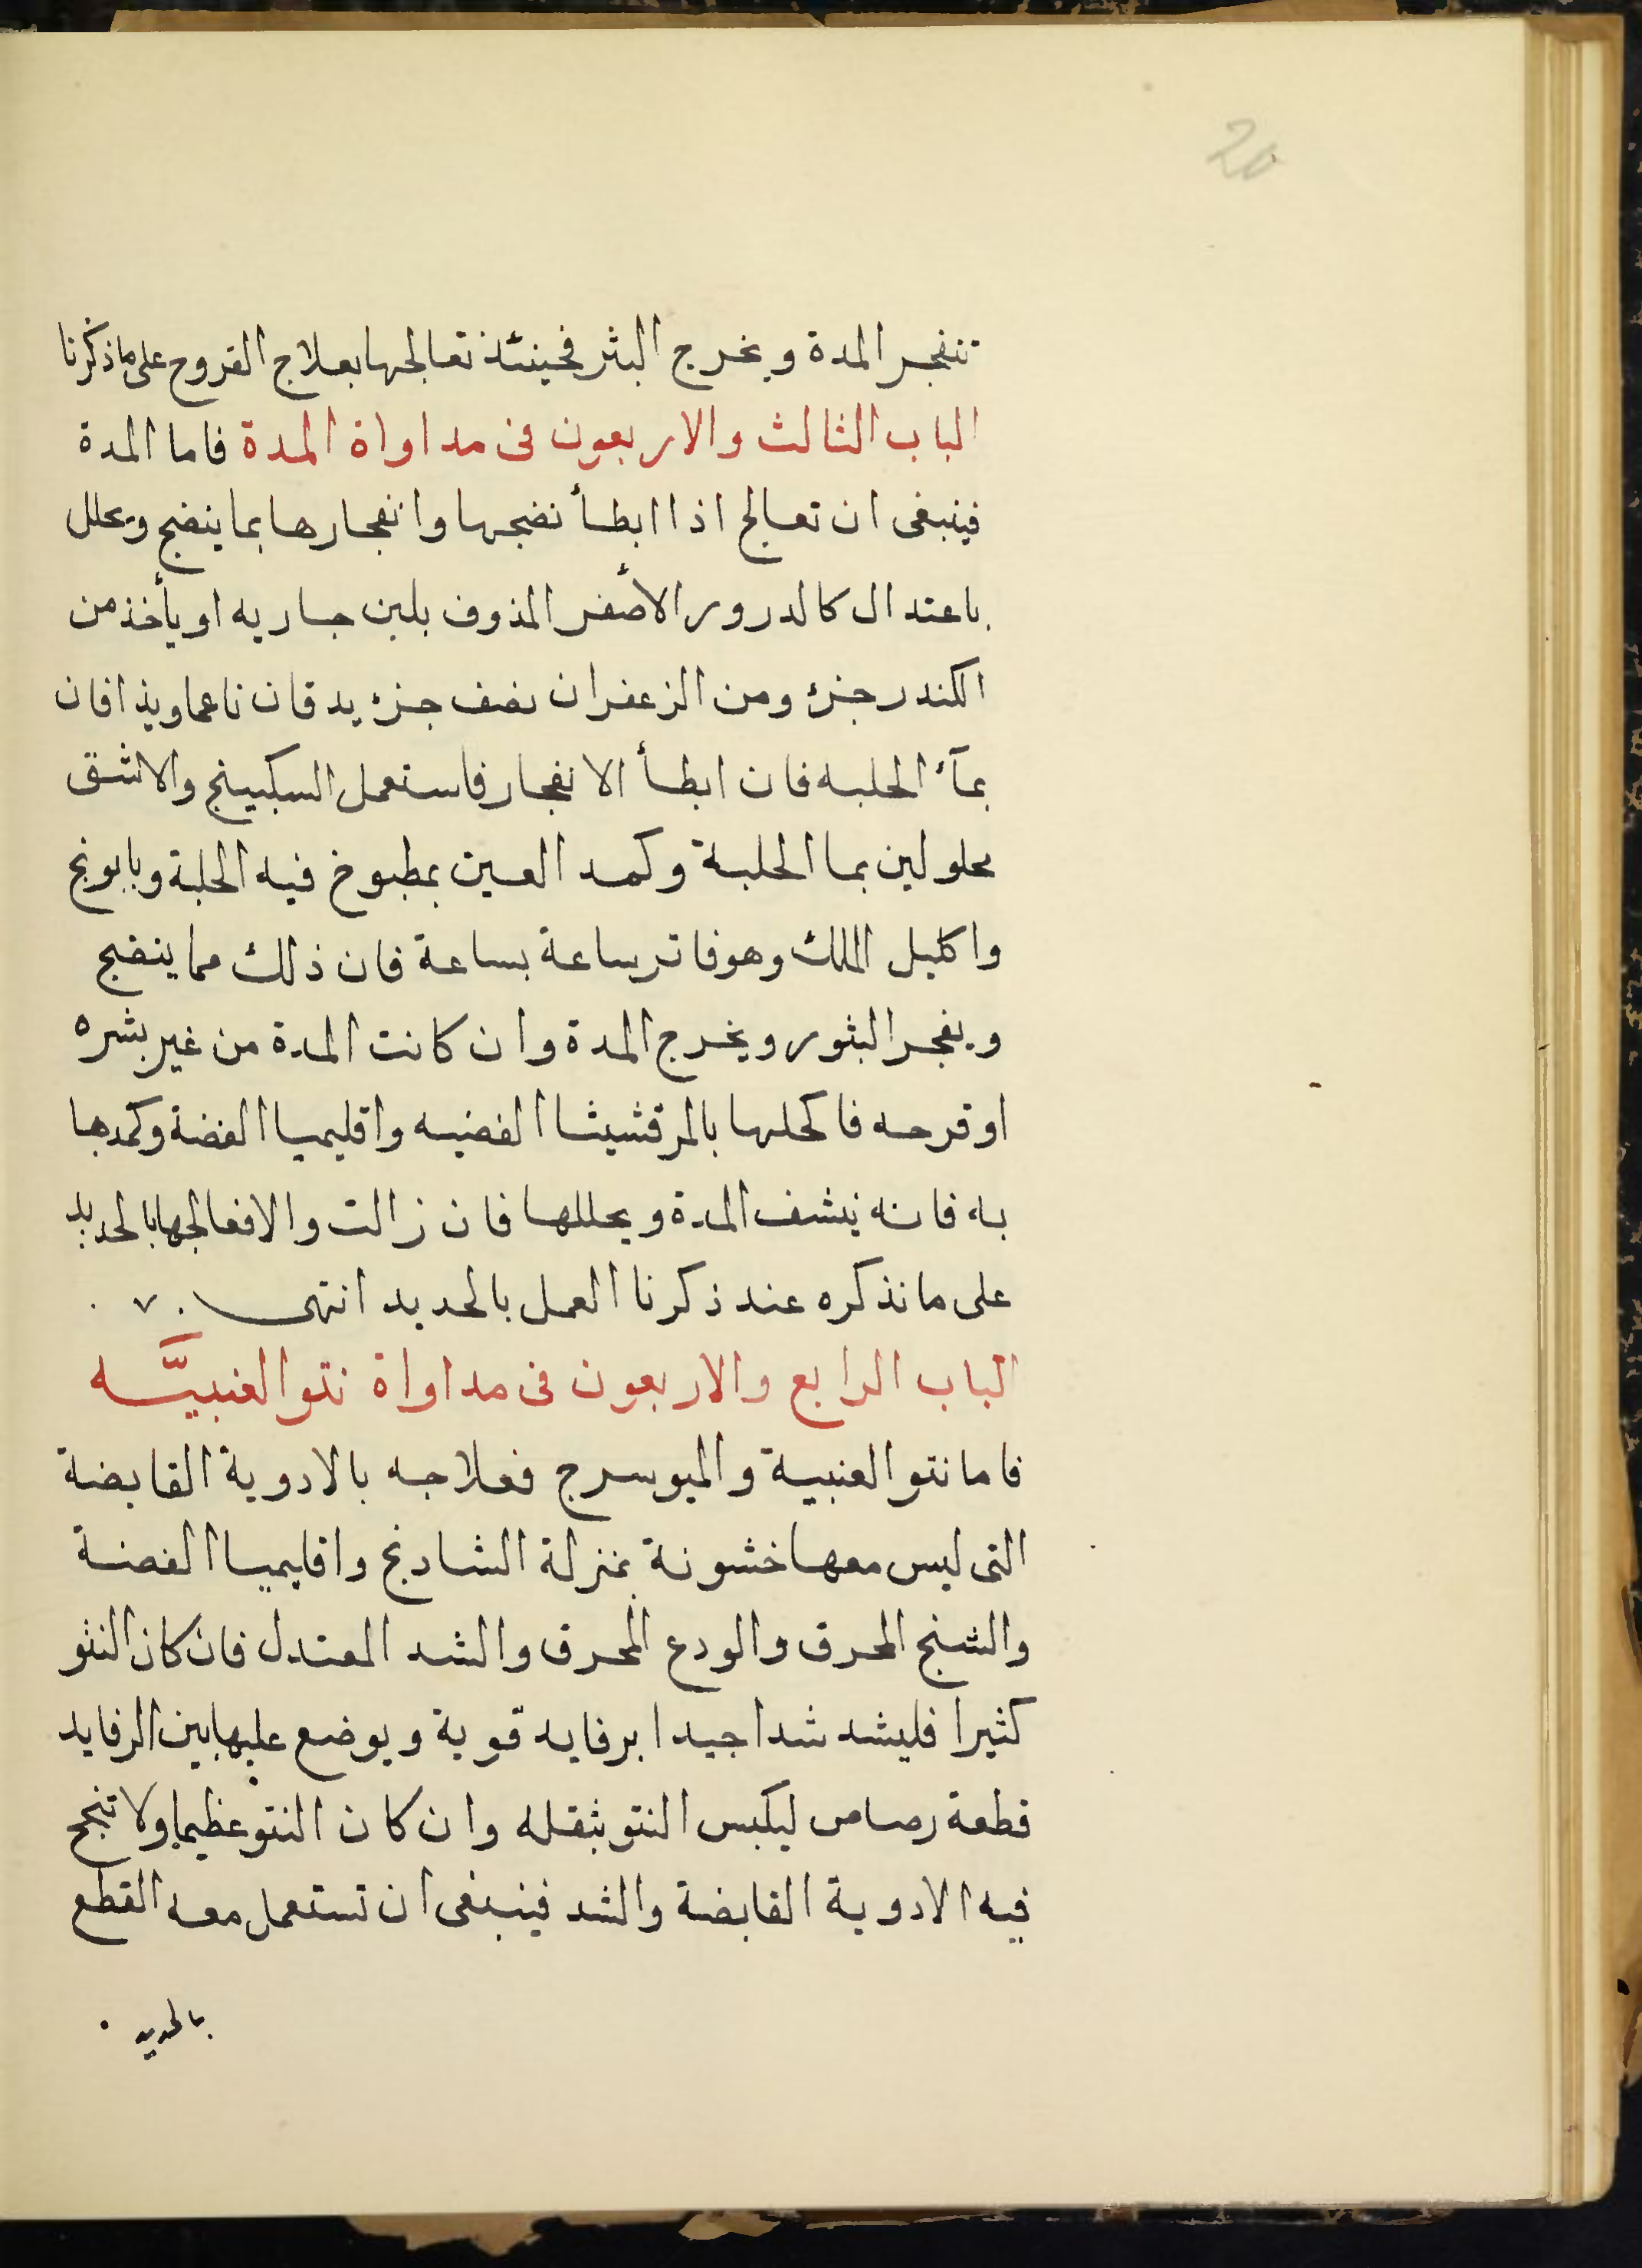 20
تنفجر المدة ويخرج البثر فحينئذ تعالجها بعلاج القروح على ما ذكرنا
الباب الثالث والاربعون فى مداواة المدة فاما المدة
فينبغى ان تعالج اذا ابطأ نضجها وانفجارها بما ينضج ويحلل
باعتدال كالدرور الأصفر المذوف بلبن جاريه او يأخذ من
الكندر جزؤ ومن الزعفران نصف جزؤ يدقان ناعما ويذافان
بمآء الحلبه فان ابطأ الانفجار فاستعمل السكبينج والاشق
محلولين بما الحلبة وكمد العين بمطبوخ فيه الحلبة وبابونج
واكليل الملك وهو فاتر ساعة بساعة فان ذلك مما ينضج
ويفجر البثور ويخرج المدة وان كانت المدة من غير بثره
او قرحه فاكحلها بالمرقشيثا الفضيه واقليميا الفضة وكمدها
به فانه ينشف المدة ويحللها فان زالت والا فعالجها بالحديد
على ما نذكره عند ذكرنا العمل بالحديد انتهى
الباب الرابع والاربعون فى مداواة نتو العنبيَّه
فاما نتو العنبية والميوسرج فعلاجه بالادوية القابضة
التى ليس معها خشونة بمنزلة الشادنج واقليميا الفضة
والشنج المحرق والودع المحرق والشد المعتدل فان كان النتو
كثيرا فليشد شدا جيدا برفايد قوية ويوضع عليها بين الرفايد
قطعة رصاص ليكبس النتو بثقله وان كان النتو عظيما ولا تنجح
فيه الادوية القابضة والشد فينبغى ان تستعمل معه القطع
بالحديد